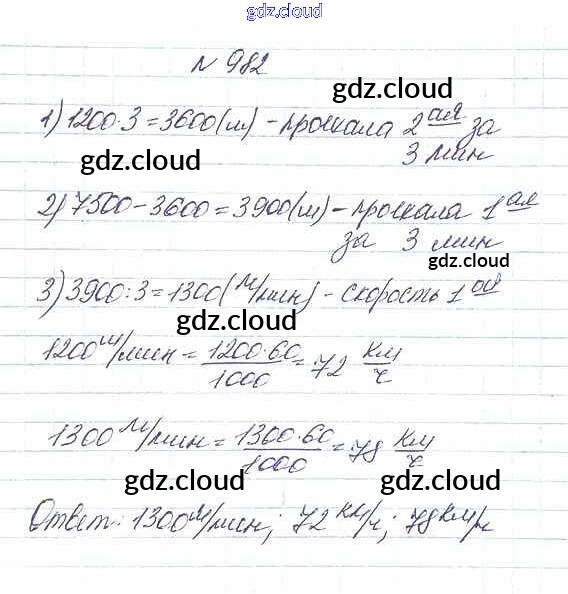 gdz.cloud
gdz.cloud
N 982
gdz.cloud
1) 1200·3=3600(м) - проехала 2 ая за
3 мин
gdz.cloud
2) 7500-3600=3900(м) - проехала 1 ая
за 3 мин
gdz.cloud
3) 3900:3=1300(м/мин) - скорость 1 ой
gdz.cloud
1200 м/мин = 1200·60/1000 = 72 км/ч
1300 м/мин = 1300·60/1000 = 78 км/ч
gdz.cloud gdz.cloud
Ответ: 1300 м/мин; 72 км/ч; 78 км/ч
gdz.cloud